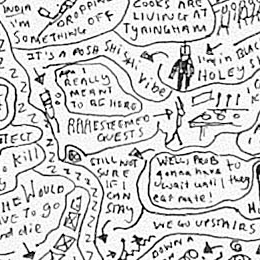 I'm DROPPING
SOMETHING OFF
COOKS ARE
LIVING AT
TYRINGHAM
IT'S A POSH
vibe
I'm in BLACK
HOLEY S
AM I
REALLY
MEANT
TO BE HERE
ESTEEMED
GUESTS
TECT
kill
STILL NOT
SURE
IF I
CAN
STAY
WELL, PROB
gonna have to
wait until they
eat mate!
HE WOULD
AVE TO go
nd die
WE GO UPSTAIRS
DOWN A